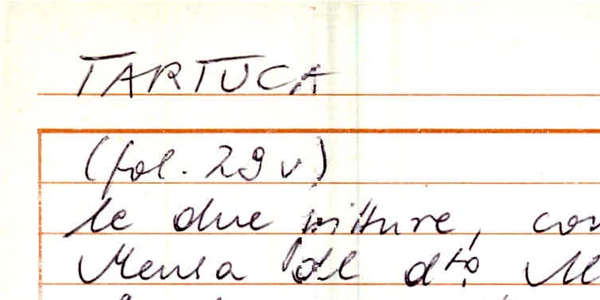 TARTUCA
(fol. 29 v)
le due pitture, con
Mensa del d.to M